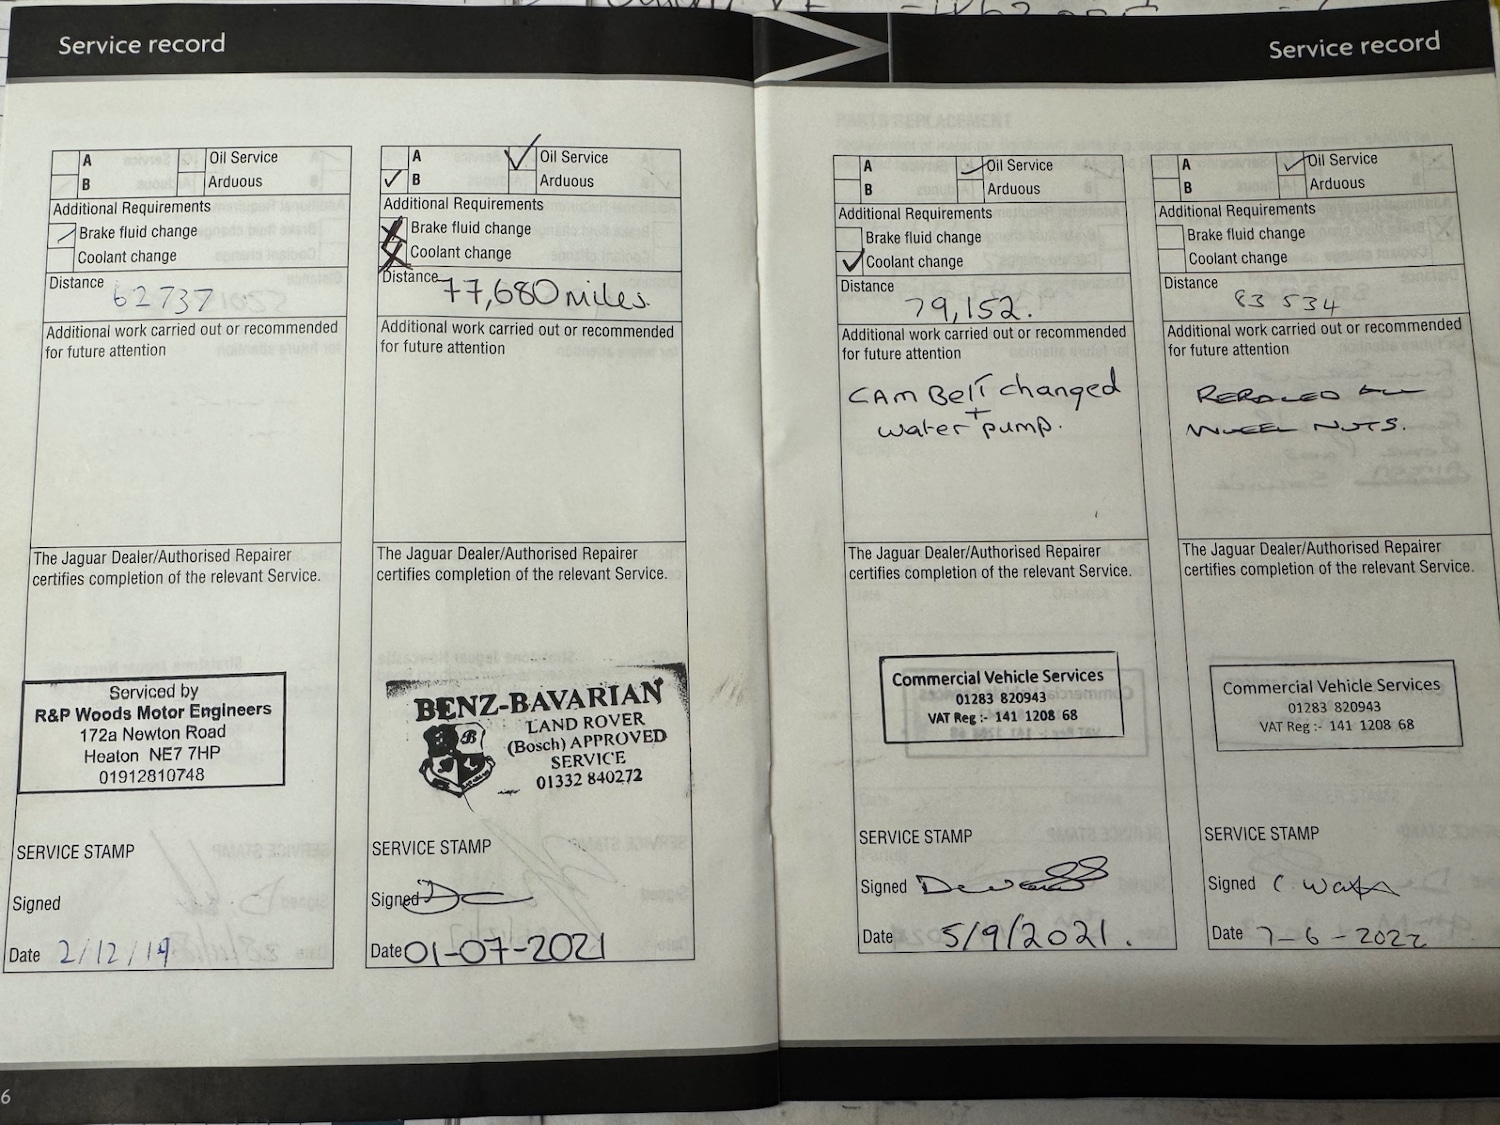 Service record
A Oil Service
B Arduous
Additional Requirements
Brake fluid change
Coolant change
Distance
62737
Additional work carried out or recommended
for future attention
The Jaguar Dealer/Authorised Repairer
certifies completion of the relevant Service.
Serviced by
R&P Woods Motor Engineers
172a Newton Road
Heaton NE7 7HP
01912810748
SERVICE STAMP
Signed
Date 2/12/19
A Oil Service
B Arduous
Additional Requirements
Brake fluid change
Coolant change
Distance
77,680 miles.
Additional work carried out or recommended
for future attention
The Jaguar Dealer/Authorised Repairer
certifies completion of the relevant Service.
BENZ-BAVARIAN
LAND ROVER
(Bosch) APPROVED
SERVICE
01332 840272
SERVICE STAMP
Signed
Date 01-07-2021
6
Service record
A Oil Service
B Arduous
Additional Requirements
Brake fluid change
Coolant change
Distance
79,152.
Additional work carried out or recommended
for future attention
CAM BELT changed
+
water pump.
The Jaguar Dealer/Authorised Repairer
certifies completion of the relevant Service.
Commercial Vehicle Services
01283 820943
VAT Reg :- 141 1208 68
SERVICE STAMP
Signed
Date 5/9/2021.
A Oil Service
B Arduous
Additional Requirements
Brake fluid change
Coolant change
Distance
83 534
Additional work carried out or recommended
for future attention
REPLACED ALL
WHEEL NUTS.
The Jaguar Dealer/Authorised Repairer
certifies completion of the relevant Service.
Commercial Vehicle Services
01283 820943
VAT Reg :- 141 1208 68
SERVICE STAMP
Signed
Date 7-6-2022